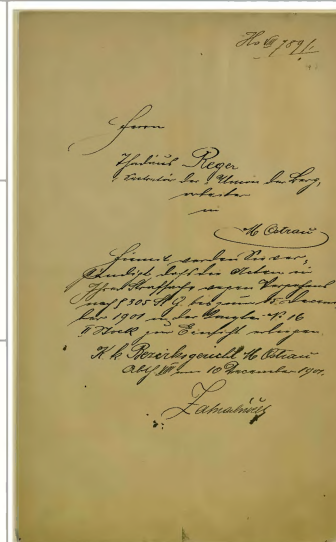 Herrn
Thadäus Reger
Sekretär der "Union" der Berg-
arbeiter
in
M Ostrau
Hiemit werden Sie ver-
ständigt dass die Akten in
Ihrer Strafsache wegen Vergehens
nach § 305 St G bis zum 15. Decem-
ber 1901 in der Kanzlei N. 16
II Stock zur Einsicht erliegen.
K k Bezirksgericht M Ostrau
Abth VII am 10 December 1901.